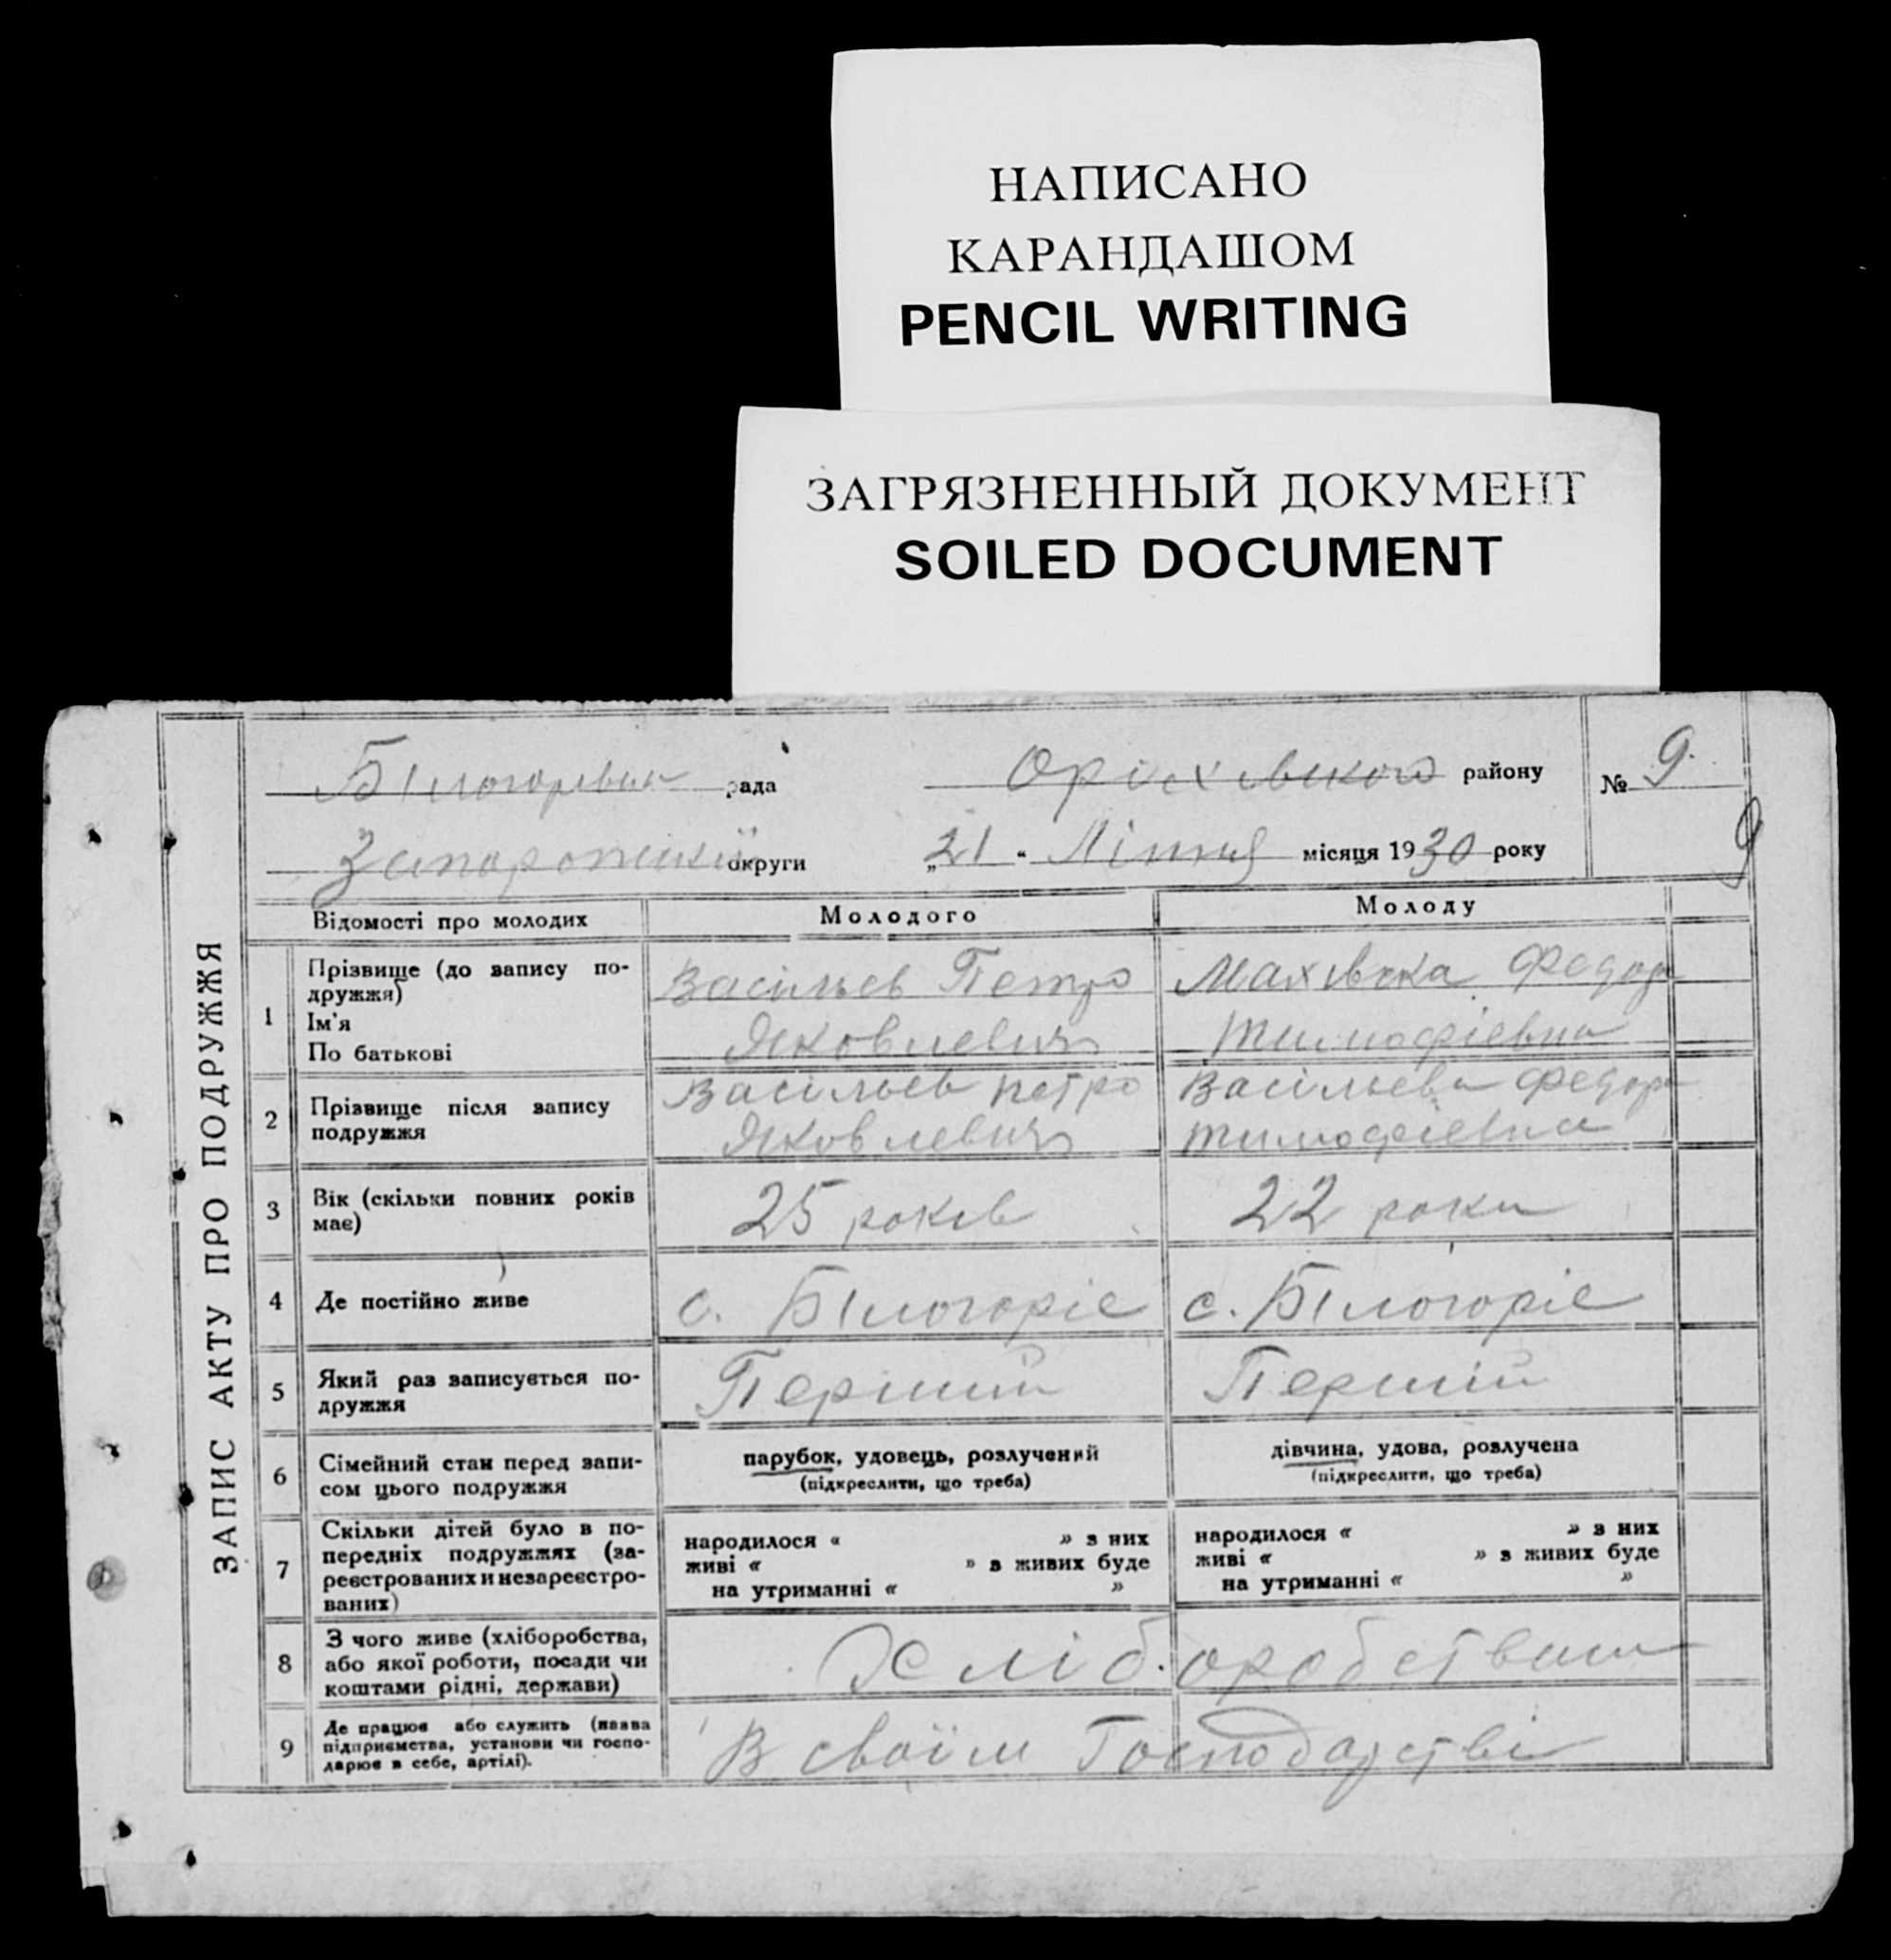 НАПИСАНО
КАРАНДАШОМ
PENCIL WRITING
ЗАГРЯЗНЕННЫЙ ДОКУМЕНТ
SOILED DOCUMENT
ЗАПИС АКТУ ПРО ПОДРУЖЖЯ
рада
Оріхівського району
№ 9.
округи
„21" місяця 1930 року
9
Відомості про молодих
Молодого
Молоду
1
Прізвище (до запису по-
дружжя)
Ім'я
По батькові
Васільєв Петро
Яковлевич
Махівська Федора
Тимофієвна
2
Прізвище після запису
подружжя
Васільєв Петро
Яковлевич
Васільєва Федора
Тимофієвна
3
Вік (скільки повних років
має)
25 років
22 роки
4
Де постійно живе
с. Білогоріє
с. Білогоріє
5
Який раз записується по-
дружжя
Перший
Перший
6
Сімейний стан перед запи-
сом цього подружжя
парубок, удовець, розлучений
(підкреслити, що треба)
дівчина, удова, розлучена
(підкреслити, що треба)
7
Скільки дітей було в по-
передніх подружжях (за-
реєстрованих и незареєстро-
ваних)
народилося « » з них
живі « » з живих буде
на утриманні « »
народилося « » з них
живі « » з живих буде
на утриманні « »
8
З чого живе (хліборобства,
або якої роботи, посади чи
коштами рідні, держави)
Хліборобством
9
Де працює або служить (назва
підприємства, установи чи госпо-
дарює в себе, артілі).
В своїм Господарстві